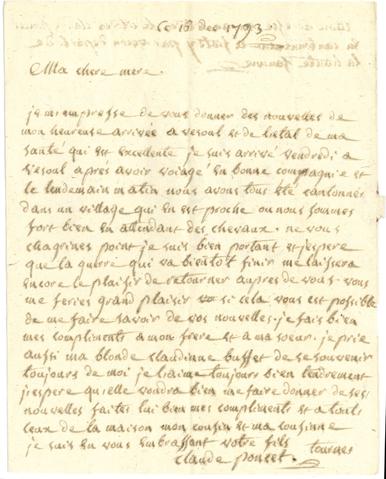 Ce 18 dec 1793
Ma chere mere.
je mempresse de vous donner des nouvelles de
mon heureuse arrivée a vesoul et de letal de ma
santé qui est excellente je suis arrivé vendredi a
vesoul apres avoir voiagé en bonne compagnie et
le lendemain matin nous avons tout été cantonner
dans un village qui en est proche ou nous sommes
fort bien en attendant des chevaux. ne vous
chagrines point je suis bien portant et jespere
que la guerre qui va bientôt finir me laissera
encore le plaisir de retourner aupres de vous. vous
me feries grand plaisir si cela vous est possible
de me faire savoir de vos nouvelles. je fais bien
mes compliments a mon frere et a ma soeur. je prie
aussi ma blonde claudinne buffet de se souvenir
toujours de moi je laime toujours bien tendrement
jespere quelle voudra bien me faire donner de ses
nouvelles faites lui bien mes compliments et a tout
ceux de la maison mon cousin et ma cousinne
je suis en vous embrassant votre fils
claude poncet. tournes